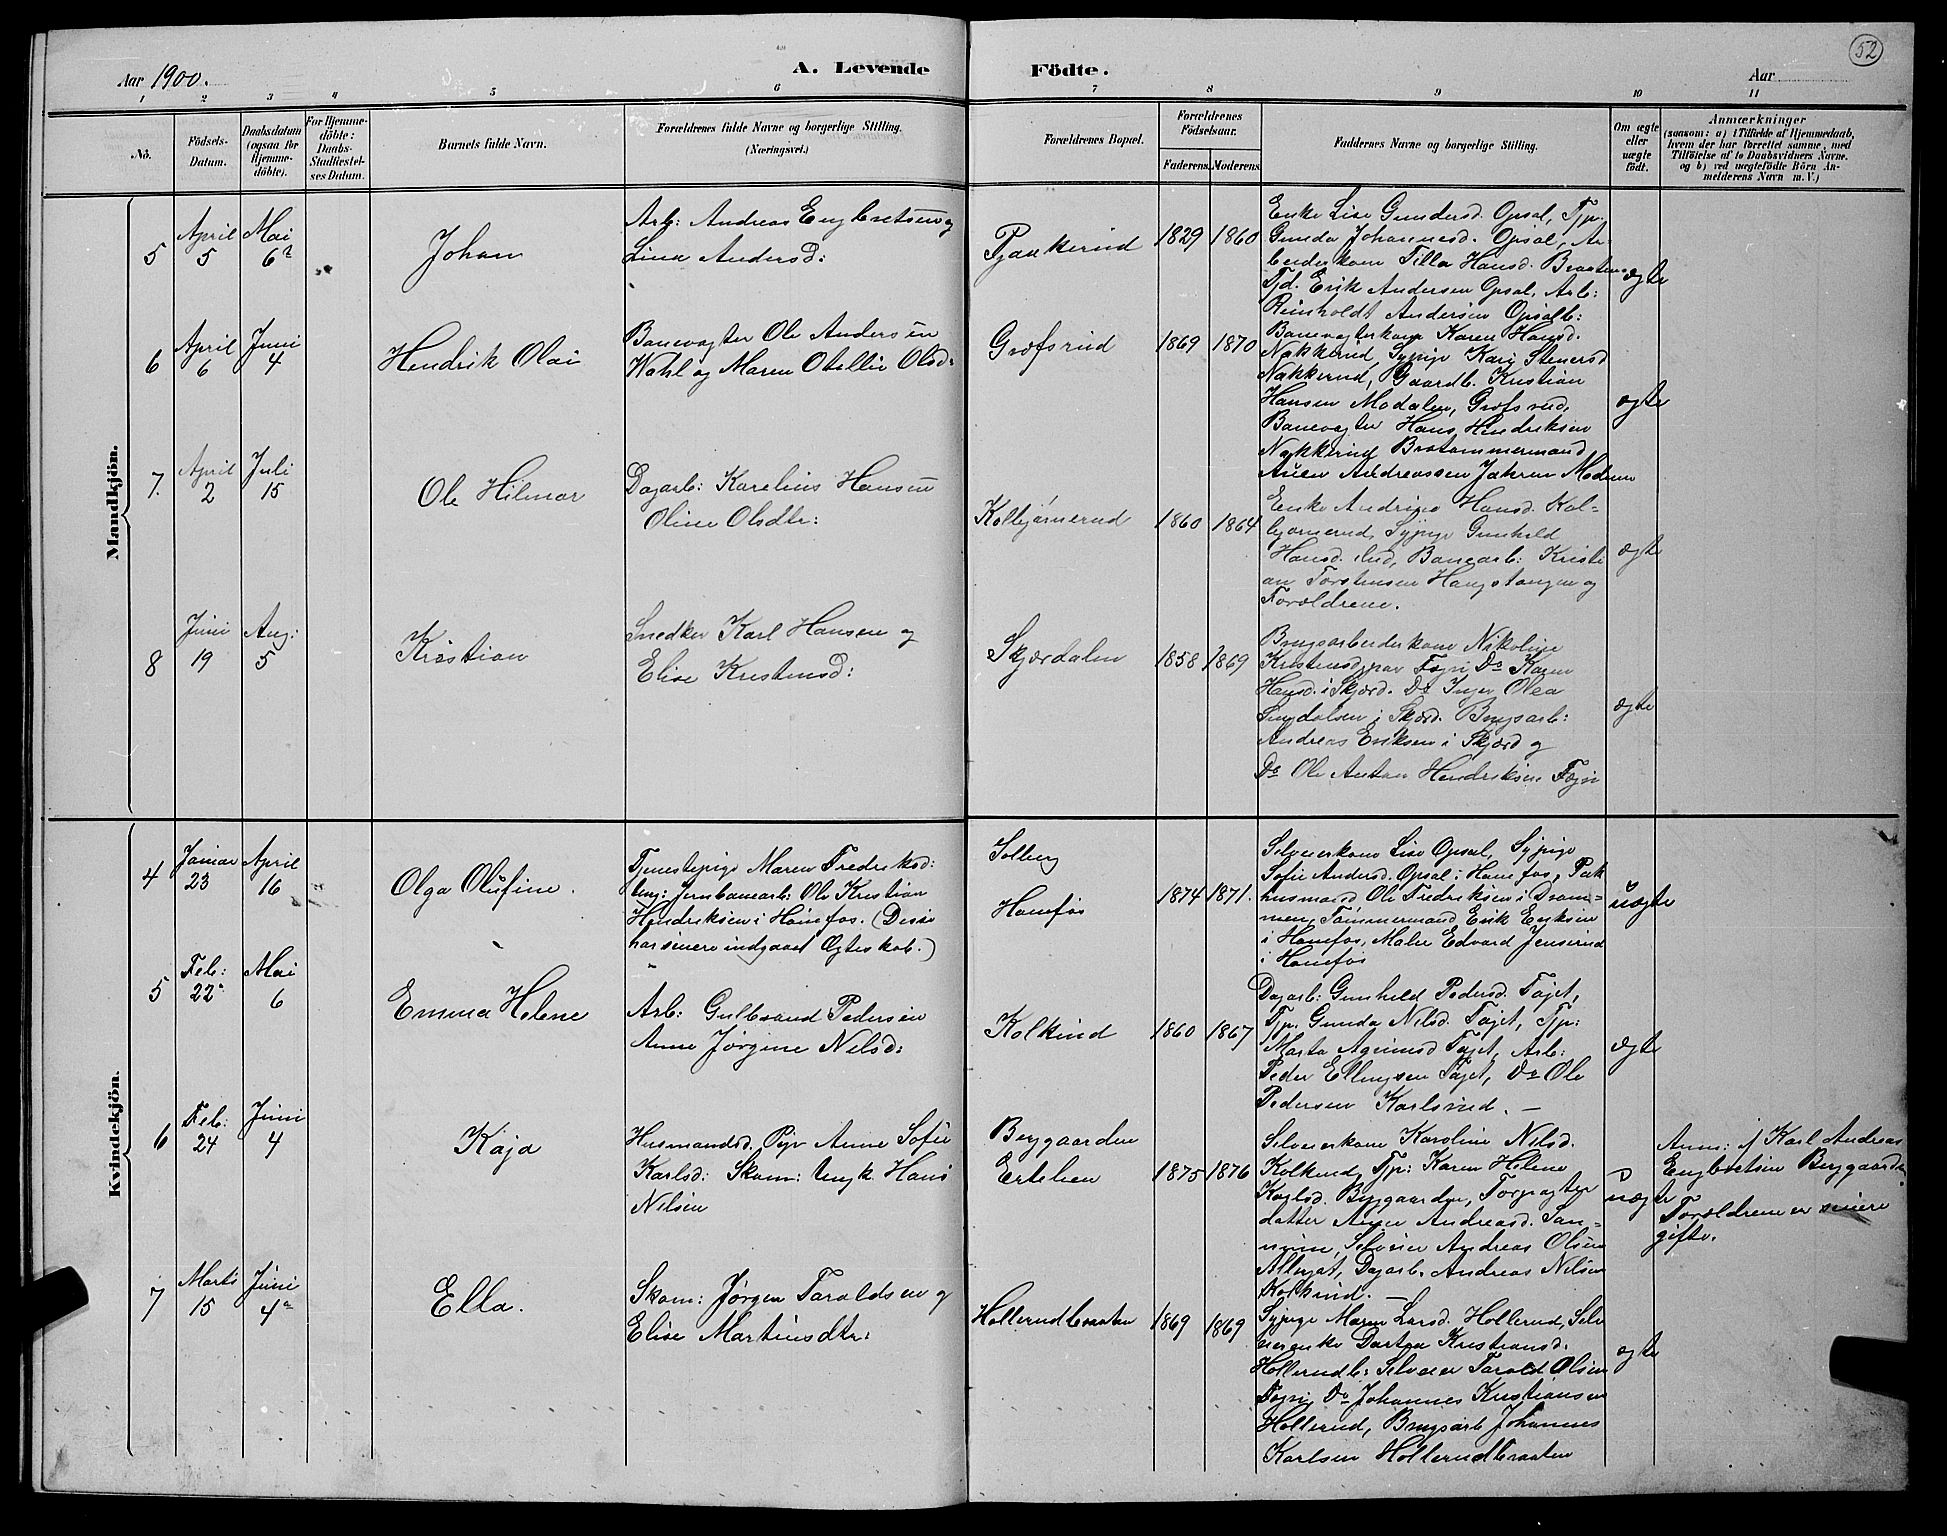 52
Aar 1900.
A. Levende Födte.
Aar
1 2 3 4 5 6 7 8 9 10 11
No.
Födsels-Datum.
Daabsdatum (ogsaa for Hjemme-döbte).
For Hjemme-döbte: Daabs-Stadfæstel-ses Datum.
Barnets fulde Navn.
Forældrenes fulde Navne og borgerlige Stilling.
(Næringsvei.)
Forældrenes Bopæl.
Forældrenes Födselsaar.
Faderens. Moderens.
Faddernes Navne og borgerlige Stilling.
Om ægte eller uægte födt.
Anmærkninger
(saasom: a) i Tilfælde af Hjemmedaab,
hvem der har forrettet samme, med
Tilföielse af to Daabsvidners Navne.
og b) ved uægtefödte Börn An-
melderens Navn m. V.)
Mandkjön.
5
April 5
Mai 6
Johan
Arb: Andreas Engbretsen og
Lina Andersd:
Pjaakerud
1829 1860
Enke Lise Gundersd. Opsal, Tjp.
Gunda Johannesd. Opsal, Ar-
beiderkone Tilla Hansd. Braaten
Tjd. Erik Andersen Opsal, Arb:
Reinholdt Andersen Opsalb:
ægte
6
April 6
Juni 4
Hendrik Olai
Banevogter Ole Andersen
Wahl og Maren Otellie Olsd:
Grøfsrud
1869 1870
Banevogterkone Karen Hansd.
Nakkerud, Sypige Kari Stenersd
Nakkerud, Gaardb. Kristian
Hansen Modalen, Grøfsrud,
Banevogter Hans Hendriksen
Nakkerud Brotømmermand
ægte
7.
April 2
Juli 15
Ole Hilmar
Dagarb: Karelius Hansen
Oline Olsdtr:
Kolbjørnerud
1860 1864
Enke Andrine Hansd. Kol-
bjørnerud, Sypige Gunhild
Hansd. ibid, Banearb: Kristi
an Torstensen Haugstangen og
Forældrene.
ægte
8
Juni 19
Aug: 5
Kristian
Snedker Karl Hansen og
Elise Kristensd:
Skjærdalen
1858 1869
Brugsarbeiderkone Nikoline
Kristensd. Do Karen
Hansd. i Skjærd. Do Inger Olea
i Skjærd. Brugsarb:
Andreas Eriksen i Skjærd og
Do Ole Anton Hendriksen
ægte
Kvindekjön.
4
Januar 23
April 16
Olga Olufine.
Tjenestepige Maren Fredriksd:
Ung: Jernbanearb: Ole Kristian
Hendriksen i Hønefos. (Disse
har senere indgaaet Ægteskab.)
Solberg
Hønefos
1874 1871.
Selveierkone Lise Opsal, Sypige
Sofie Andersd. Opsal i Hønefos, Pak
husmand Ole Fredriksen i Dram-
men, Tømmermand Erik Eriksen
i Hønefos, Maler Edvard Jenserud
i Hønefos
uægte
5
Feb: 22
Mai 6
Emma Helene
Arb: Gulbrand Pedersen
Anne Jørgine Nilsd:
Kolkind
1860 1867
Dagarb: Gunhild Pedersd. Føjet,
Tjp. Gunda Nilsd. Føjet, Tjp:
Marta Føjet, Arb:
Peder Ellingsen Føjet, Do Ole
Pedersen Karlsrud. —
ægte
6
Feb: 24
Juni 4
Kaja
Husmandsd. Pige Anne Sofie
Karlsd: Skom: Ungk. Hans
Nilsen
Berggaarden
Ertelien
1875 1876
Selveierkone Karoline Nilsd.
Kolkind, Tjp: Karen Helene
Karlsd. Berggaarden, Forpagter
datter Andreasd.
Selveier Andreas Olsen
Dagarb. Andreas Nilsen
Kolkind. —
uægte
Anm: af Karl Andreas
Engbretsen Berggaarden
Forældrene er senere
gifte.
7
Marts 15
Juni 4
Ella.
Skom: Jørgen Taraldsen og
Elise Martinsdtr:
Hollerudbraaten
1869 1869
Sypige Maren Larsd. Hollerud, Selv
eierenke Dortea Kristiansd.
Hollerudb: Selveier Tarald Olsen
Do Johannes Kristiansen
Hollerud, Brugsarb Johannes
Karlsen Hollerudbraaten
ægte